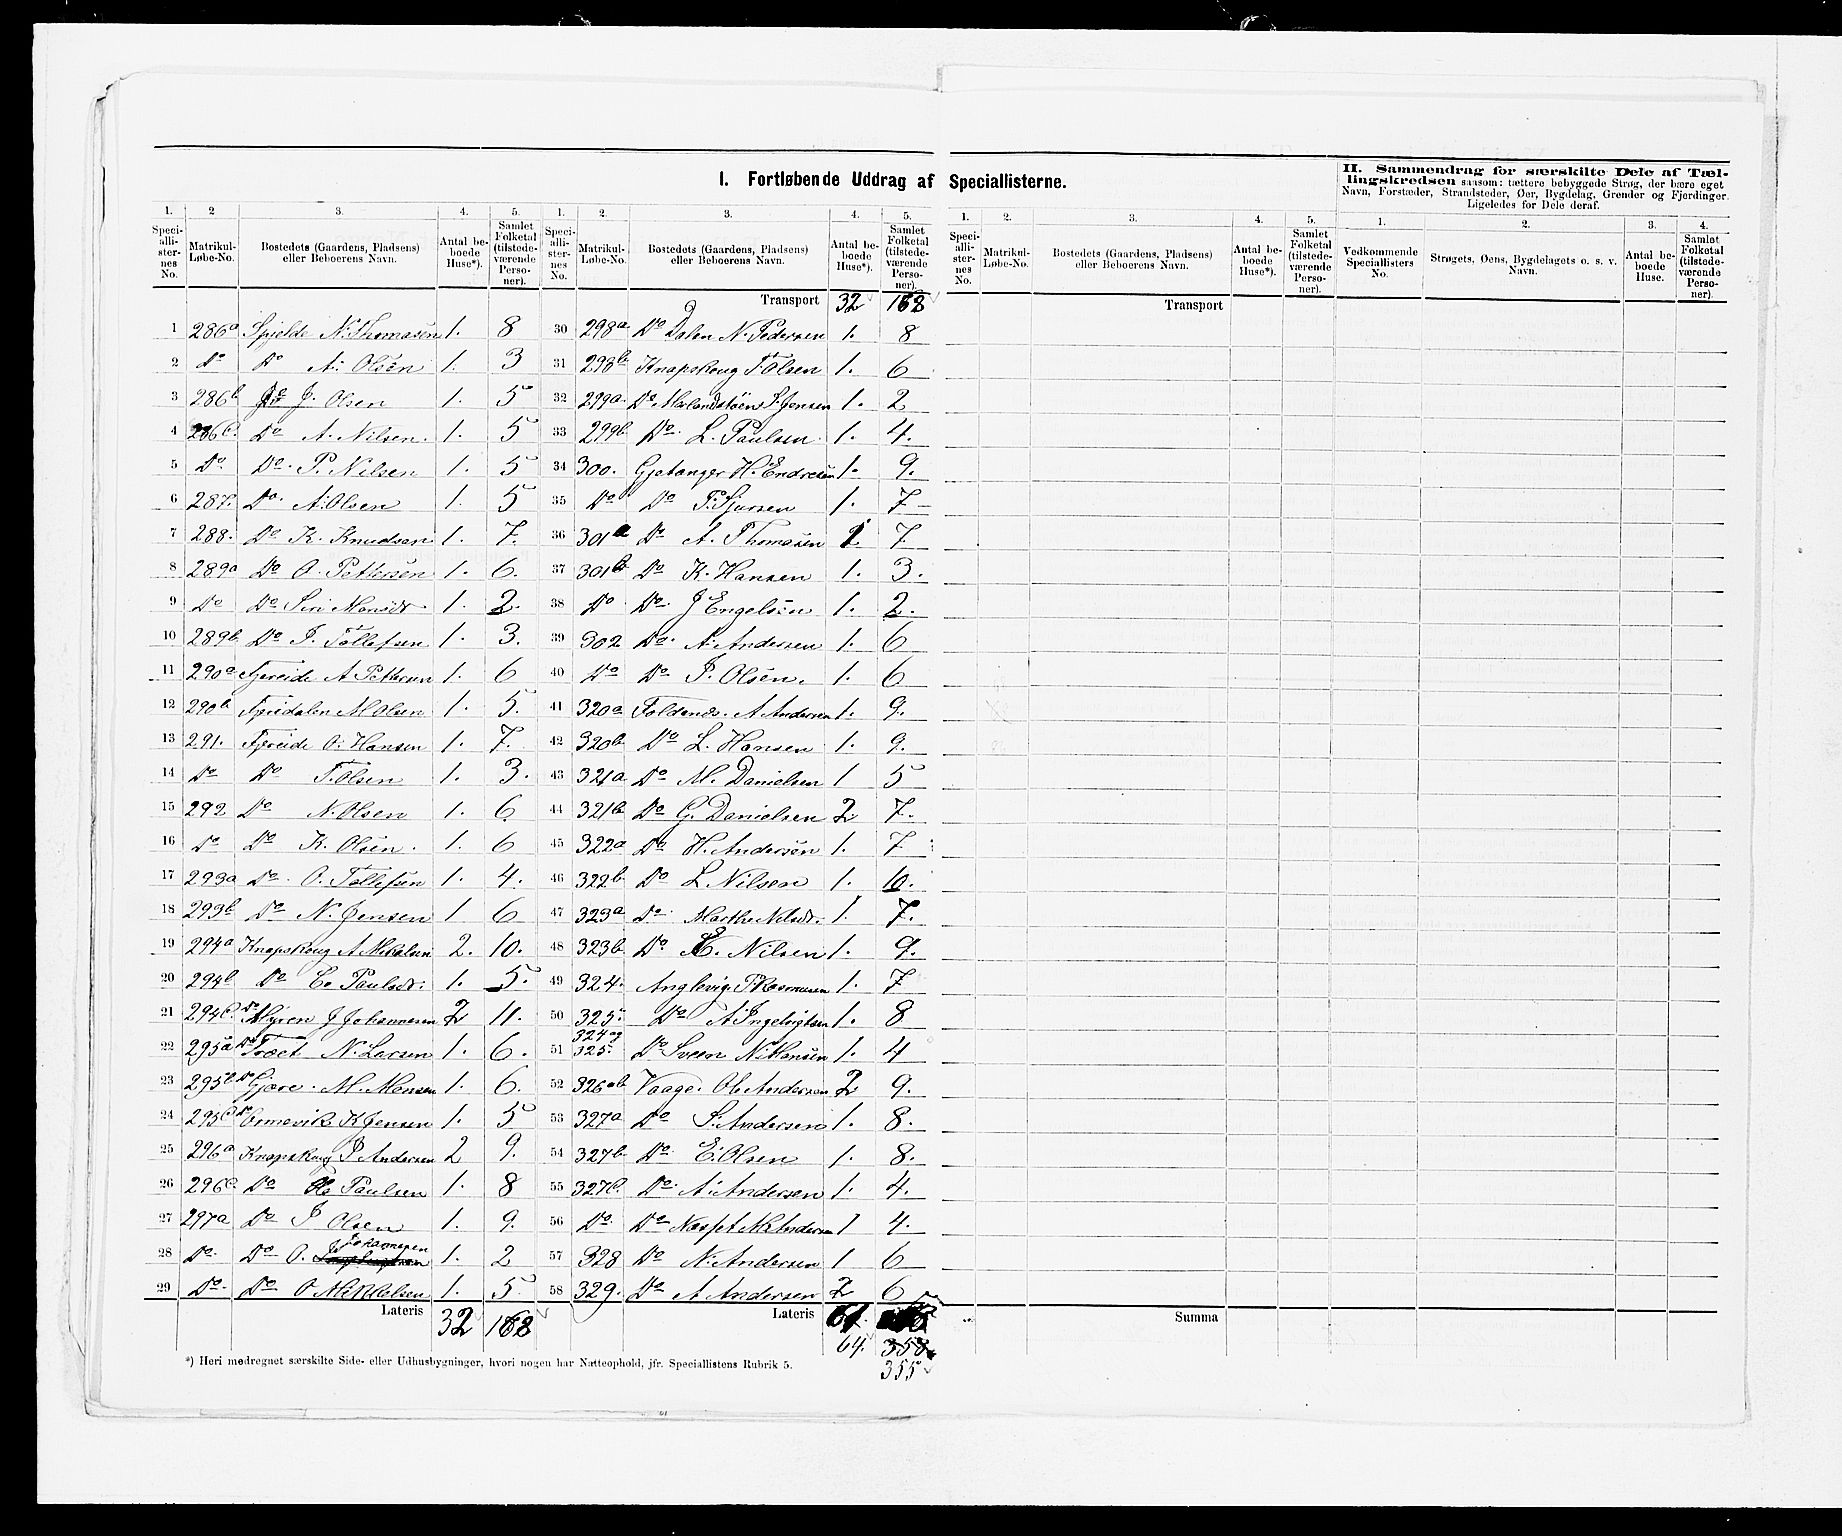 I. Fortløbende Uddrag af Speciallisterne.
II. Sammendrag for særskilte Dele af Tæl-
lingskredsen saasom: tættere bebyggede Strøg, der bære eget
Navn, Forstæder, Strandsteder, Øer, Bygdelag, Grender og Fjerdinger.
Ligeledes for Dele deraf.
1. 2 3. 4. 5. 1. 2. 3. 4. 5. 1. 2. 3. 4. 5. 1. 2. 3. 4.
Speci-alli-ster-nes No. Matrikul-Løbe-No. Bostedets (Gaardens, Pladsens) eller Beboerens Navn. Antal be-boede Huse*). Samlet Folketal (tilstede-værende Perso-ner).
Speci-alli-ster-nes No. Matrikul-Løbe-No. Bostedets (Gaardens, Pladsens) eller Beboerens Navn. Antal be-boede Huse*). Samlet Folketal (tilstede-værende Perso-ner).
Speci-alli-ster-nes No. Matrikul-Løbe-No. Bostedets (Gaardens, Pladsens) eller Beboerens Navn. Antal be-boede Huse*). Samlet Folketal (tilstede-værende Perso-ner).
Vedkommende Speciallisters No. Strøgets, Øens, Bygdelagets o. s. v. Navn. Antal be-boede Huse. Samlet Folketal (tilstede-værende Perso-ner).
1 286a Spjelde N. Thomasen 1. 8
2 Do Do A. Olsen 1. 3
3 286b Do J. Olsen 1. 5
4 286c. Do A. Nilsen. 1. 5
5 Do. Do. P. Nilsen 1. 5
6 287. Do. A. Olsen 1. 5
7 288. Do K. Knudsen 1. 7.
8 289a Do O. Pettersen 1. 6.
9 Do Do Siri Monsdr. 1. 2.
10 289b. Do J. Tollefsen 1. 3.
11 290a Fjereide A Pettersen 1. 6
12 290b Fjeredalen M Olsen 1. 5.
13 291. Fjereide O. Hansen 1. 7.
14 Do Do T. Olsen 1. 3.
15 292 Do N. Olsen 1. 6
16 Do Do K. Olsen. 1. 6
17 293a Do. O. Tollefsen 1. 4.
18 293b Do N. Jensen 1 6
19 294a Knapskoug A Mikalsen 2. 10.
20 294b Do C. Paulsdr. 1. 5.
21 294c. Do Myren J Johannesen 2 11.
22 295a Do Træet N. Larsen 1. 6.
23 295b Do Gjære. M. Monsen 1. 6.
24 295c Do Ormevik K Jensen 1. 5
25 296a Knapskoug P Andersen 2 9.
26 296c. Do Ole Paulsen 1. 8
27 297a Do J Olsen 1. 9.
28 Do. Do O. Johannesen 1. 2
29 Do. Do O Mikkelsen 1. 5.
Lateris 32 168
Transport 32 168
30 298a Do Dalen N. Pedersen 1. 8
31 298b. Knapskoug T Olsen 1. 6
32 299a. Do Mælandstøen S. Jensen 1. 2
33 299b. Do. L. Paulsen. 1. 4.
34 300. Gjetanger H. Endresen 1. 9.
35 Do Do P. Sjursen 1. 7
36 301a Do A. Thomasen 1 7
37 301b Do K. Hansen 1. 3.
38 Do Do. J Engelsen 1. 2.
39 302 Do. A. Andersen 1. 6
40 Do Do P. Olsen. 1. 6
41 320a Foldenæs. A Andersen 1. 9.
42 320b. Do L. Hansen 1. 9.
43 321a Do M. Danielsen 1 5
44 321b Do G. Danielsen 2 7.
45 322a Do H. Andersen 1. 7
46 322b. Do L Nilsen 1. 10.
47 323a Do. Marthe Nilsdr. 1. 7.
48 323b. Do E. Nilsen 1. 9.
49 324. Anglevig. P Rasmusen 1. 7
50 325. Do A Ingebrigtsen 1. 8
51 324 og 325. Do Sveen N Hansen 1. 4
52 326ab. Vaage. Ole Andersen 2 9.
53 327a Do S. Andersen 1. 8.
54 327b. Do. E. Olsen 1. 8.
55 327c. Do. A. Andersen 1. 4.
56 Do. Do Næsset N Andersen 1 4.
57 328 Do N. Andersen 1 6
58 329. Do A Andersen 2 6
Lateris 64. 358
355
Transport
Summa
*) Heri medregnet særskilte Side- eller Udhusbygninger, hvori nogen har Natteophold, jfr. Speciallistens Rubrik 5.